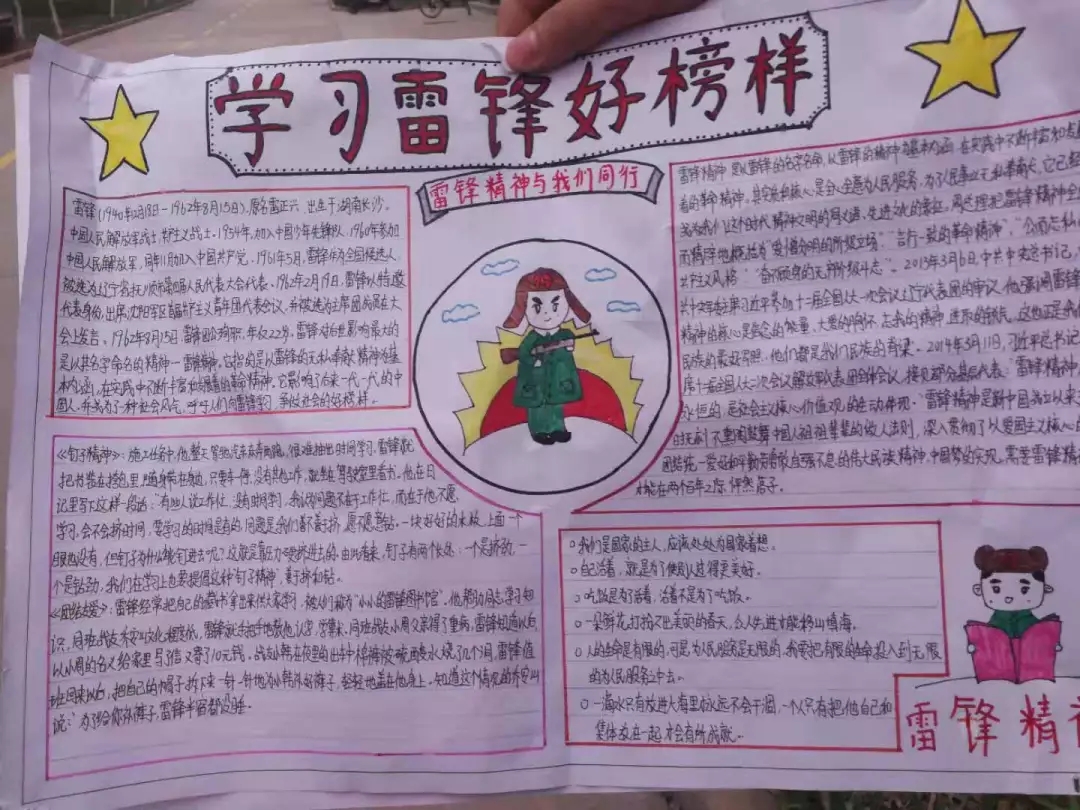 学习雷锋好榜样
雷锋精神与我们同行
雷锋(1940年12月18日-1962年8月15日),原名雷正兴,出生于湖南长沙。
中国人民解放军战士,共产主义战士。1954年,加入中国少年先锋队,1960年参加
中国人民解放军,同年11月加入中国共产党。1961年5月,雷锋作为全国候选人,
被选为辽宁省抚顺市第四届人民代表大会代表。1962年2月19日,雷锋以特邀
代表身份,出席沈阳军区首届共产主义青年团代表会议,并被选为主席团成员在大
会上发言。1962年8月15日,雷锋因公殉职,年仅22岁。雷锋对后世影响最大的
是以其名字命名的精神一雷锋精神。它指的是以雷锋的无私奉献精神为基
本内涵,在实践中不断丰富和发展着的革命精神,它影响了后来一代一代的中
国人,并成为了一种社会风气,呼吁人们向雷锋学习,争做社会的好榜样。
雷锋精神是以雷锋的名字命名,以雷锋的精神为基本内涵,在实践中不断丰富和发
着的革命精神,其实质和核心是全心全意为人民服务,为了人民事业无私奉献,它已
成为我们这个时代精神文明的同义语、先进文化的表征。周总理把雷锋精神全
而精辟地概括为“爱憎分明的阶级立场”、“言行一致的革命精神”、“公而忘私
共产主义风格”、“奋不顾身的无产阶级斗志”。2013年3月6日,中共中央总书记、
精神的核心是信念的能量、大爱的胸怀、忘我的精神、进取的锐气,这也正是我们
民族的最好写照,他们都是我们民族的脊梁。2014年3月11日,习近平总书记
永恒的,是社会主义核心价值观的生动体现。
《钉子精神》:施工任务中,他整天驾驶汽车东奔西跑,很难抽出时间学习,雷锋就
把书装在挎包里,随身带在身边,只要车一停,没有其他工作,就坐在驾驶室里看书。他在日
记里写下这样一段话:“有些人说工作忙,没有时间学习,我认为问题不在于工作忙,而在于你愿不愿
学习,会不会挤时间,要学习的时间是有的,问题是我们善不善于挤,愿不愿意钻。一块好好的木板,上面一个
眼也没有,但钉子为什么能钉进去呢?这就是靠压力硬挤进去的,由此看来,钉子有两个长处:一个是挤劲,一
个是钻劲,我们在学习上也要提倡这种“钉子精神”,善于挤和钻。
《团结友爱》:雷锋经常把自己的藏书拿出来供大家学习,被人们称为“小小的雷锋图书馆”。他帮助同志学习知
以小周的名义给家里写信又寄了10元钱。战友小韩在夜里出车中棉裤被硫酸水烧了几个洞,雷锋值
班回来以后,把自己的帽子拆下来一针一针地为小韩补好裤子,轻轻地盖在他身上。
○我们是国家的主人,应该处处为国家着想。
○自己活着,就是为了使别人过得更美好。
○吃饭是为了活着,活着不是为了吃饭。
○一朵鲜花打扮不出美丽的春天,众人先进才能移山填海。
○人的生命是有限的,可是,为人民服务是无限的,我要把有限的生命投入到无限
的为人民服务之中去。
○一滴水只有放进大海里才永远不会干涸,一个人只有把他自己和
集体放在一起才会有所成就。
雷锋精神